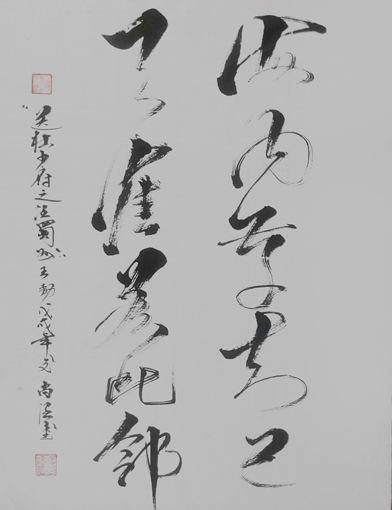 海内存知己
天涯若比邻
"送杜少府之任蜀州"王勃戊戌年冬尚